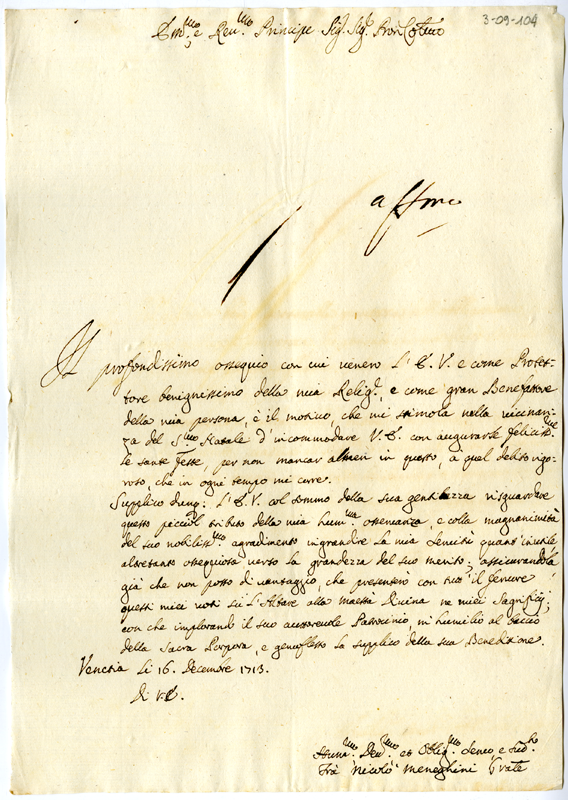 3-09-104
Em.mo e Rev.mo Principe Sig. Sig. Pron Col.mo
Il profondissimo ossequio con cui venero L'E.V. e come Protet-
tore benignissimo della mia Relig.e, e come gran Benefattore
della mia persona, è il motivo, che mi stimola nella vicinan-
za del S.mo Natale d'incommodare V.E. con augurarle felicis.me
le sante Feste, per non mancar almen in questo, à quel debito rigo-
roso, che in ogni tempo mi corre.
Supplico dunq. L'E.V. col sommo della sua gentilezza risguardare
questo picciol tributo della mia hum.ma osservanza, e colla magnanimità
del suo nobiliss.mo agradimento ingrandire la mia servitù quant'inutile
altretanto ossequiosa verso la grandezza del suo merito; assicurandola
già che non posso di vantaggio, che presenterò con tutto il fervore
questi miei voti sù L'Altare alla maestà Divina ne miei Sagrificij;
con che implorando il suo autorevole Patrocinio, m'humilio al baccio
della Sacra Porpora, e genuflesso la supplico della sua Benedizione.
Venetia Li 16. Decembre 1713.
Di V.E.
Hum.mo Dev.mo et Oblig.mo Servo, e Sud.to
Frà Nicolò Meneghini Frate